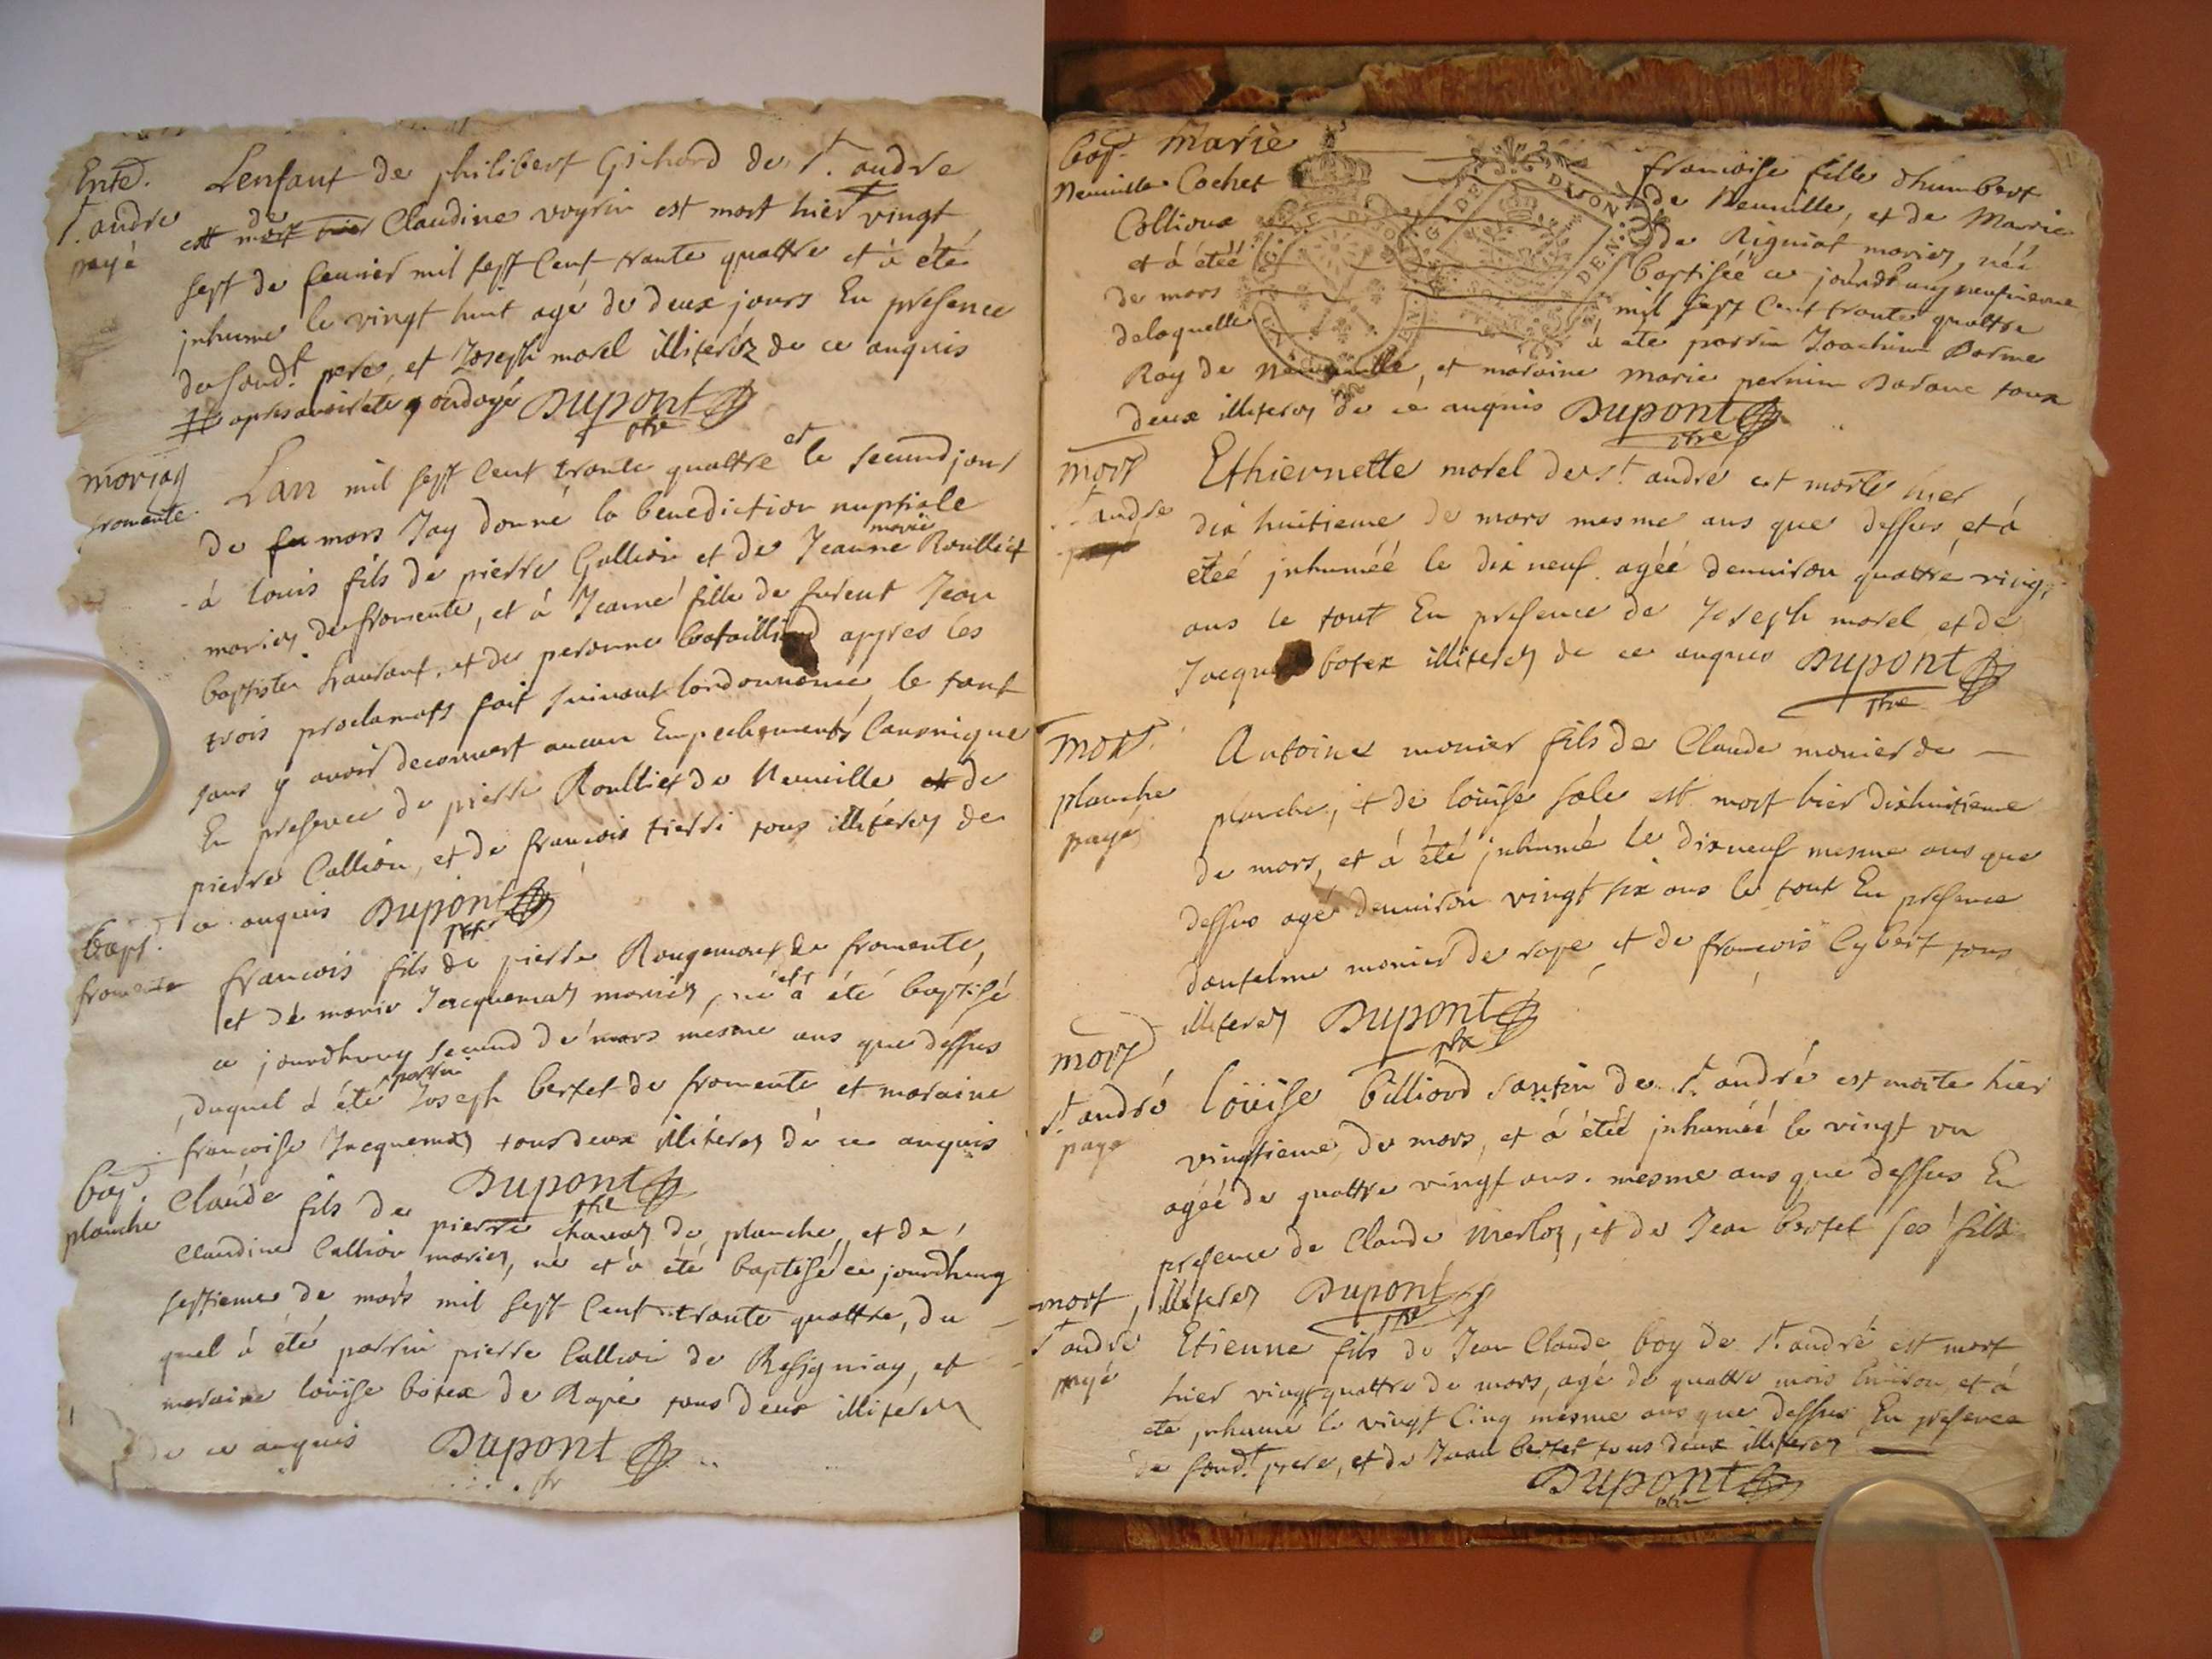 Ente.
St. andre
payé
Lenfant de philibert Gichard de St. andre
est mort hier de Claudine voyrin est mort hier vingt
sept de feuvier mil sept Cent trante quattre et à été
jnhumé le vingt huit agé de deux jours En presence
du soudt. pere, et Joseph morel illiterez de ce enquis
# apres avoir été ondoyé Dupont
ptre
mariag
fromente
Lan mil sept Cent trante quattre et le second jour
de mars Jay donné la benediction nuptiale
à louis fils de pierre Gallion et de Jeanne marie Roulliet
mariez de fromente, et à Jeanne fille de furent Jean
baptiste et de peronne bataillard appres les
trois proclamats fait suivant lordonnance, le tout
sans y avoir decouvert aucun Empechements Canonique
En presence de pierre Roulliet de Neuville et de
pierre Callion, et de francois tierri tous illiterez de
ce enquis Dupont
ptre
bapt.
fromente
francois fils de pierre Rougemont de fromente,
et de marie Jacquemez mariez, né et à été baptisé
ce jourdhuy second de mars mesme ans que dessus
duquel à été parrin Joseph bertet de fromente et maraine
francoise Jacquemez tous deux illiterez de ce enquis
Dupont
ptre
bap.
planche
Claude fils de pierre chanaz de planche, et de
Claudine Callion mariez, né et à été baptisé ce jourdhuy
septieme de mars mil sept Cent trante quattre, du
quel à été parrin pierre Callion de Resigniay, et
maraine loüise botex de Rapé tous deux illiterez
de ce enquis Dupont
ptre
bap. Marie francoise fille dhumbert
Neuville Cochet de Neuville, et de Marie
Collioux de Rigniat mariez, née
et à étéé baptiséé ce jourdhuy neufvieme
de mars mil sept Cent trante quattre
delaquelle à été parrin Joachim Borme
Roy de Neuville, et maraine marie pernin tous
deux illiterez de ce enquis Dupont
ptre
mort
St. andre
Ethiennette morel de St. andré est morte hier
dix huitieme de mars mesme ans que dessus, et à
étéé jnhuméé le dix neuf agéé denviron quattre vingt
ans le tout En presence de Joseph morel et de
Jacque botex illiterez de ce enquis Dupont
ptre
mort.
planche
payé
Antoine monier fils de Claude monier de
planche, et de loüise sole est mort hier dixhuitieme
de mars, et à été jnhumé le dixneuf mesme ans que
dessus agé denviron vingt six ans le tout En presence
dantelme monier de rape et de francois Cybert tous
illiterez Dupont
ptre
mort
St. andré
payé
loüise billiard de St. andré est morte hier
vingtieme de mars, et à étéé jnhuméé le vingt un
agéé de quattre vingt ans. mesme ans que dessus En
presence de Claude Merloz, et de Jean bertet ses fils
illiterez Dupont
ptre
mort
St andré
payé
Etienne fils de Jean Claude boy de St. andré est mort
hier vingtquattre de mars, agé de quattre mois Environ et à
été jnhumé le vingt Cinq mesme ans que dessus En presence
de soudt. pere, et de Jean bertet tous deux illiterez
Dupont
ptre